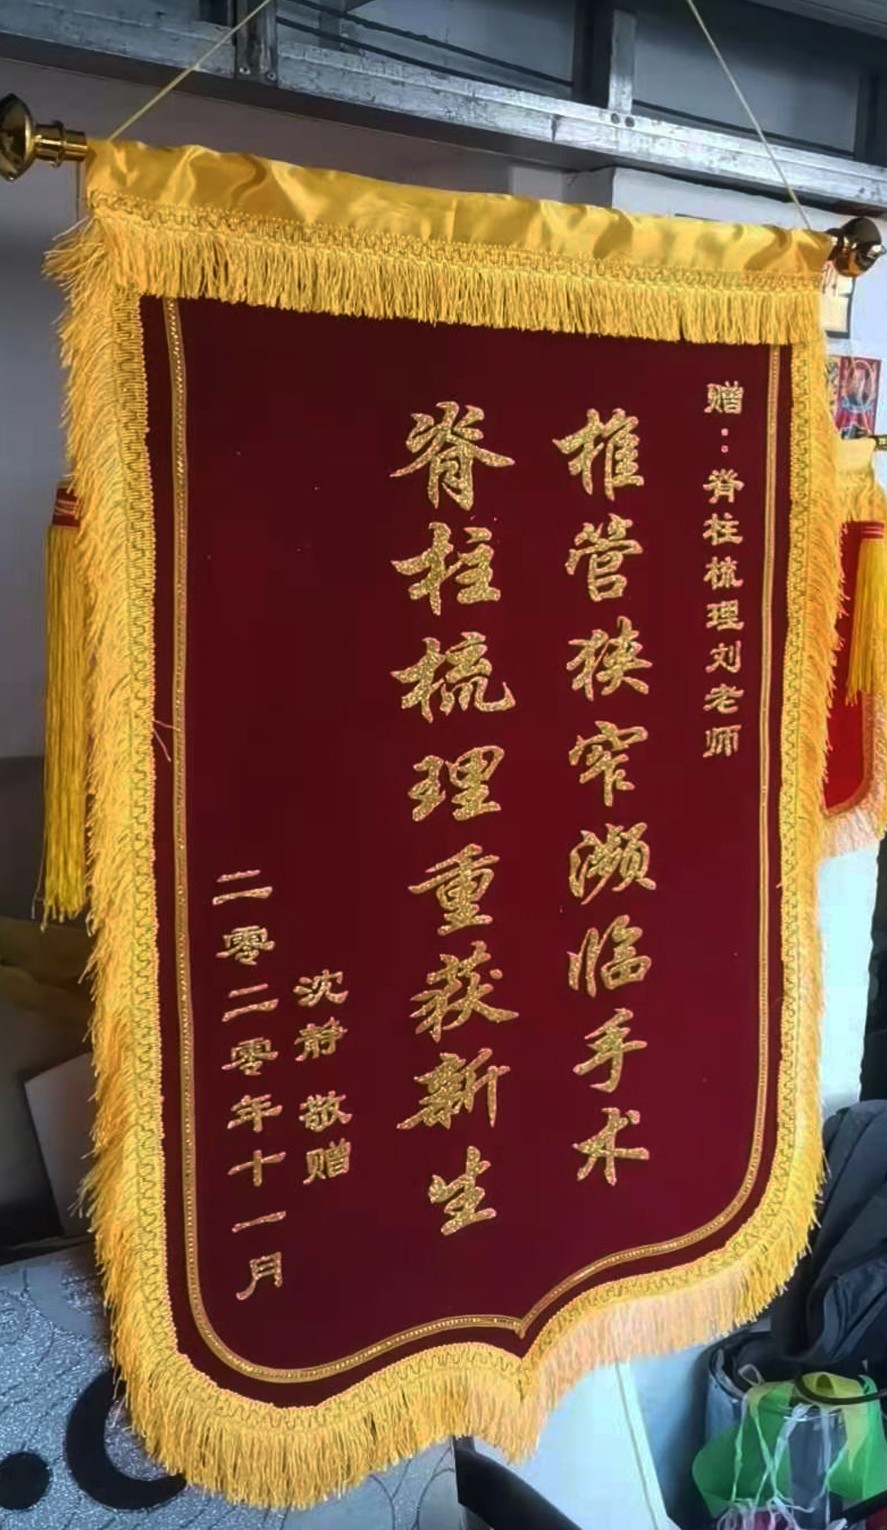 赠：脊柱梳理刘老师
椎管狭窄濒临手术
脊柱梳理重获新生
沈静 敬赠
二零二零年十一月